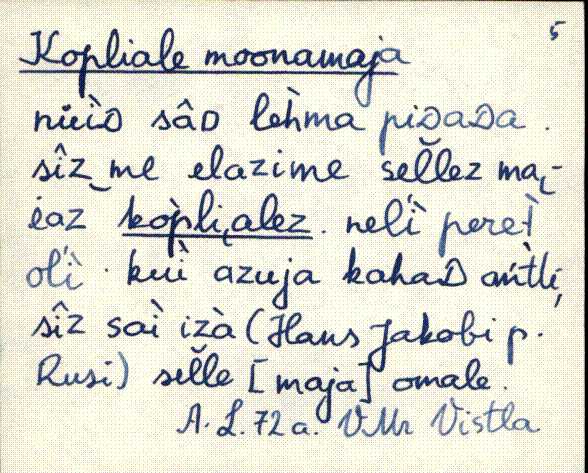 5
Kopliale moonamaja
nüìᴅ sâᴅ lèhma piᴅaᴅa.
sîz me elazime sel̆lez ma͔i-
ėaz kòpli͔alez. nelˊi̇̀ perèt
olˊi̇̀. kuì azuja kahaᴅ ańtli͔,
sîz saì izà (Hans Jakobi p.
Rusi) sel̆le [maja] omale.
A. L. 72 a. VMr Vistla